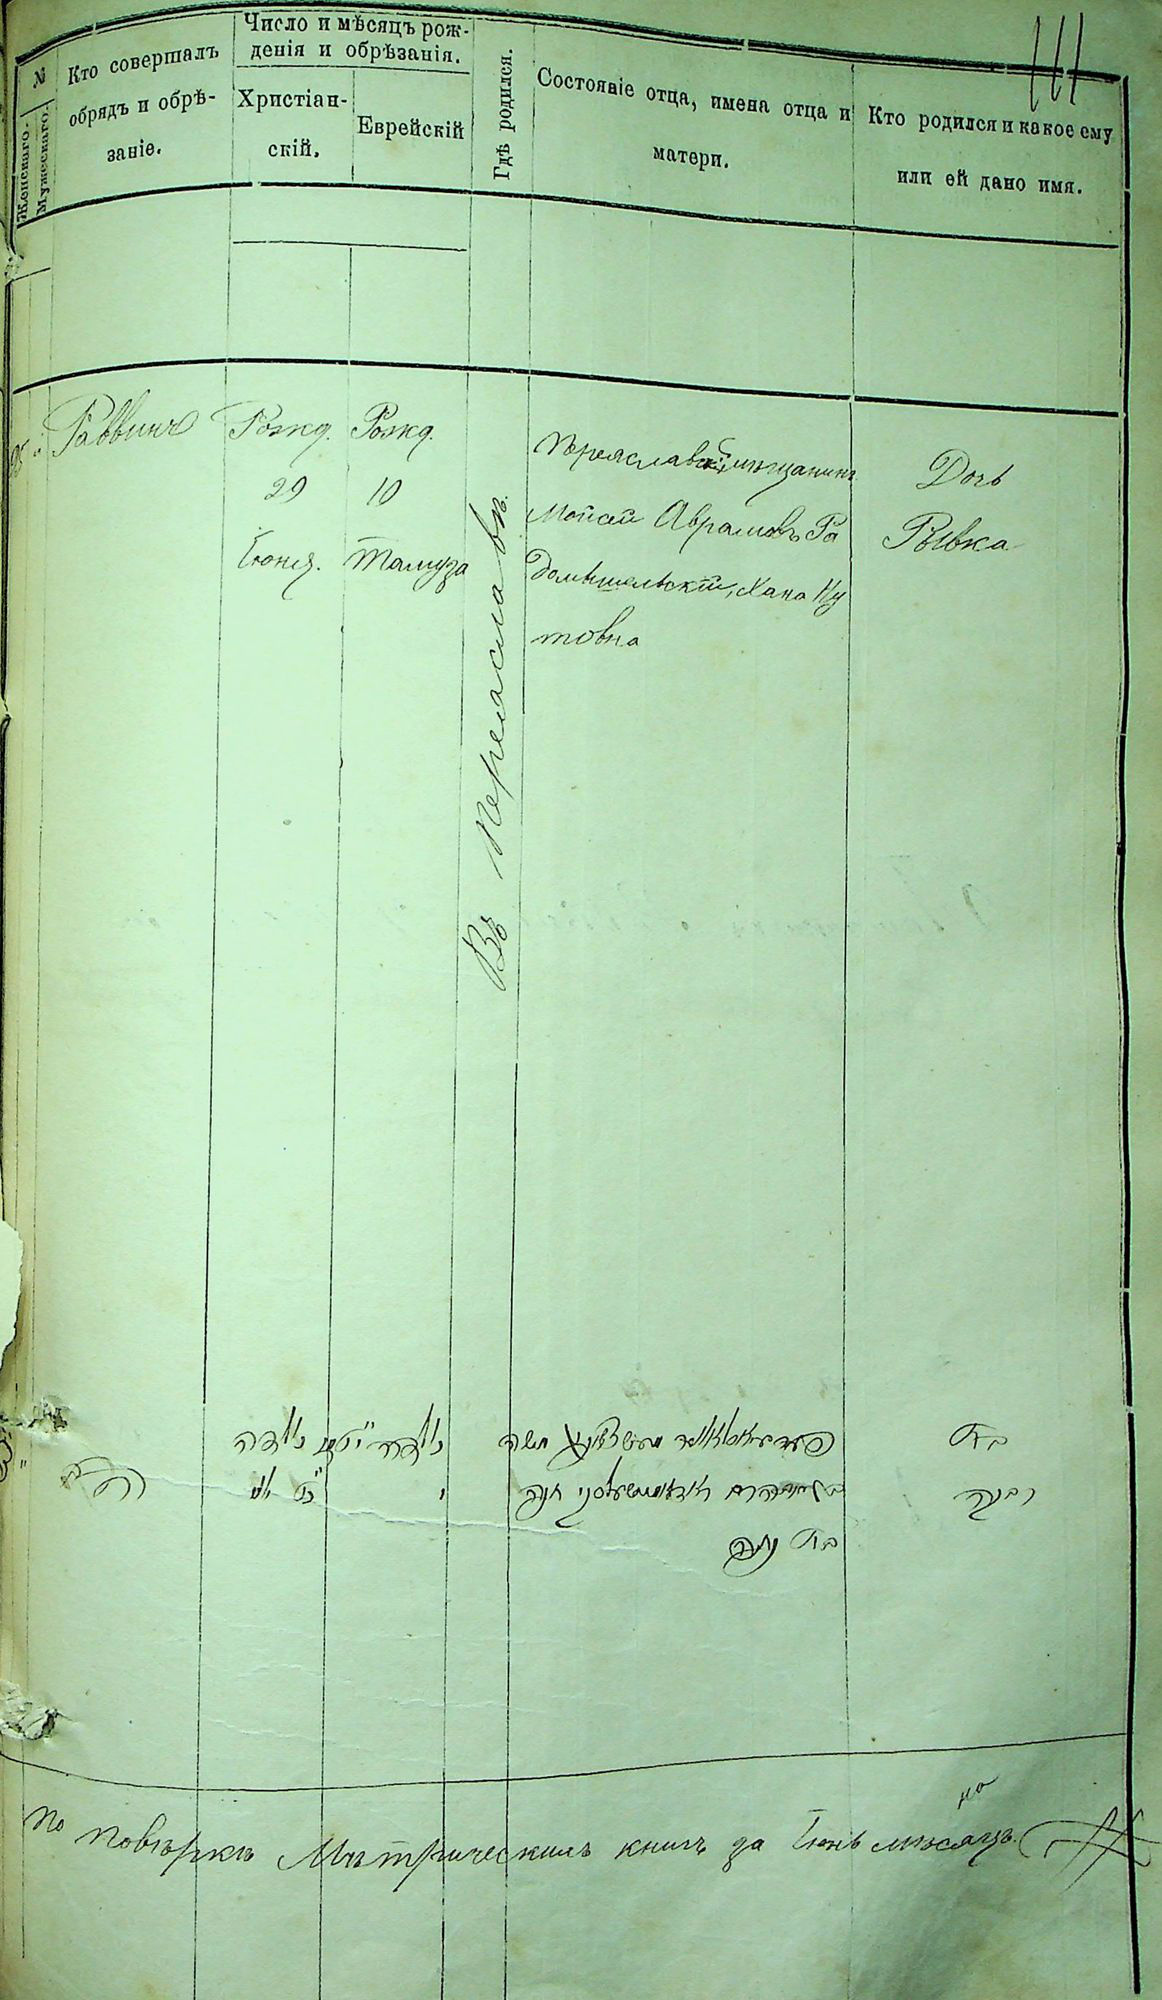 №
Женскаго.
Мужескаго.
Кто совершалъ
обрядъ и обрѣ-
заніе.
Число и мѣсяцъ рож-
денія и обрѣзанія.
Христіан-
скій.
Еврейскій
Гдѣ родился.
Состояніе отца, имена отца и
матери.
Кто родился и какое ему
или ей дано имя.
Раввинъ
Рожд.
29
Іюня.
Рожд.
10
Тамуза
Въ Переяславѣ.
Переяславскій мѣщанинъ
Мойсей Аврамовъ Ра
домышельскій, Хана Ну
товна
Дочь
Рывка
נולדה
נולדה
י
משה
חנה
בת נטע
בת
רבקה
По повѣркѣ Метрическихъ книгъ за Іюнь мѣсяцъ.